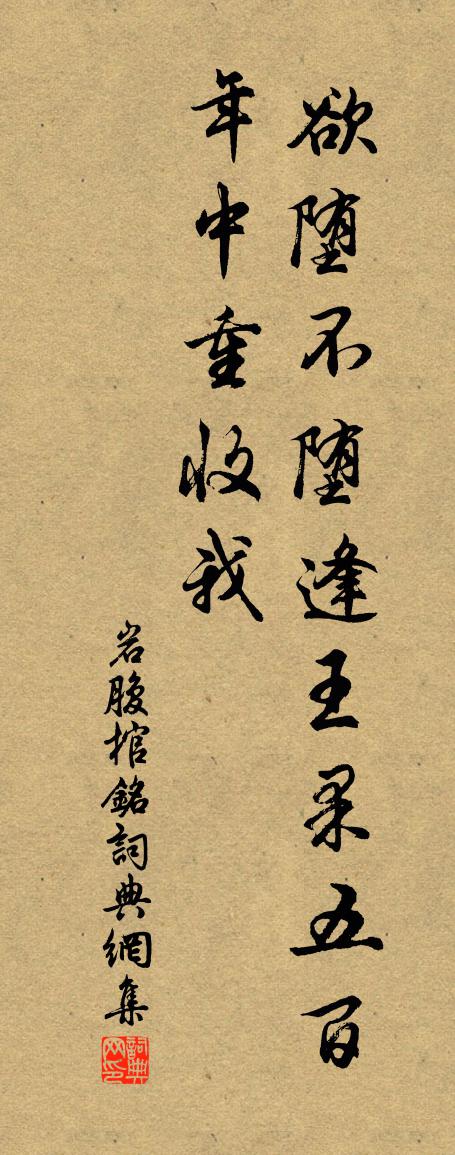 欲堕不堕逢王果五百
年中重收我
岩腹棺銘詞典網集
詞典网印